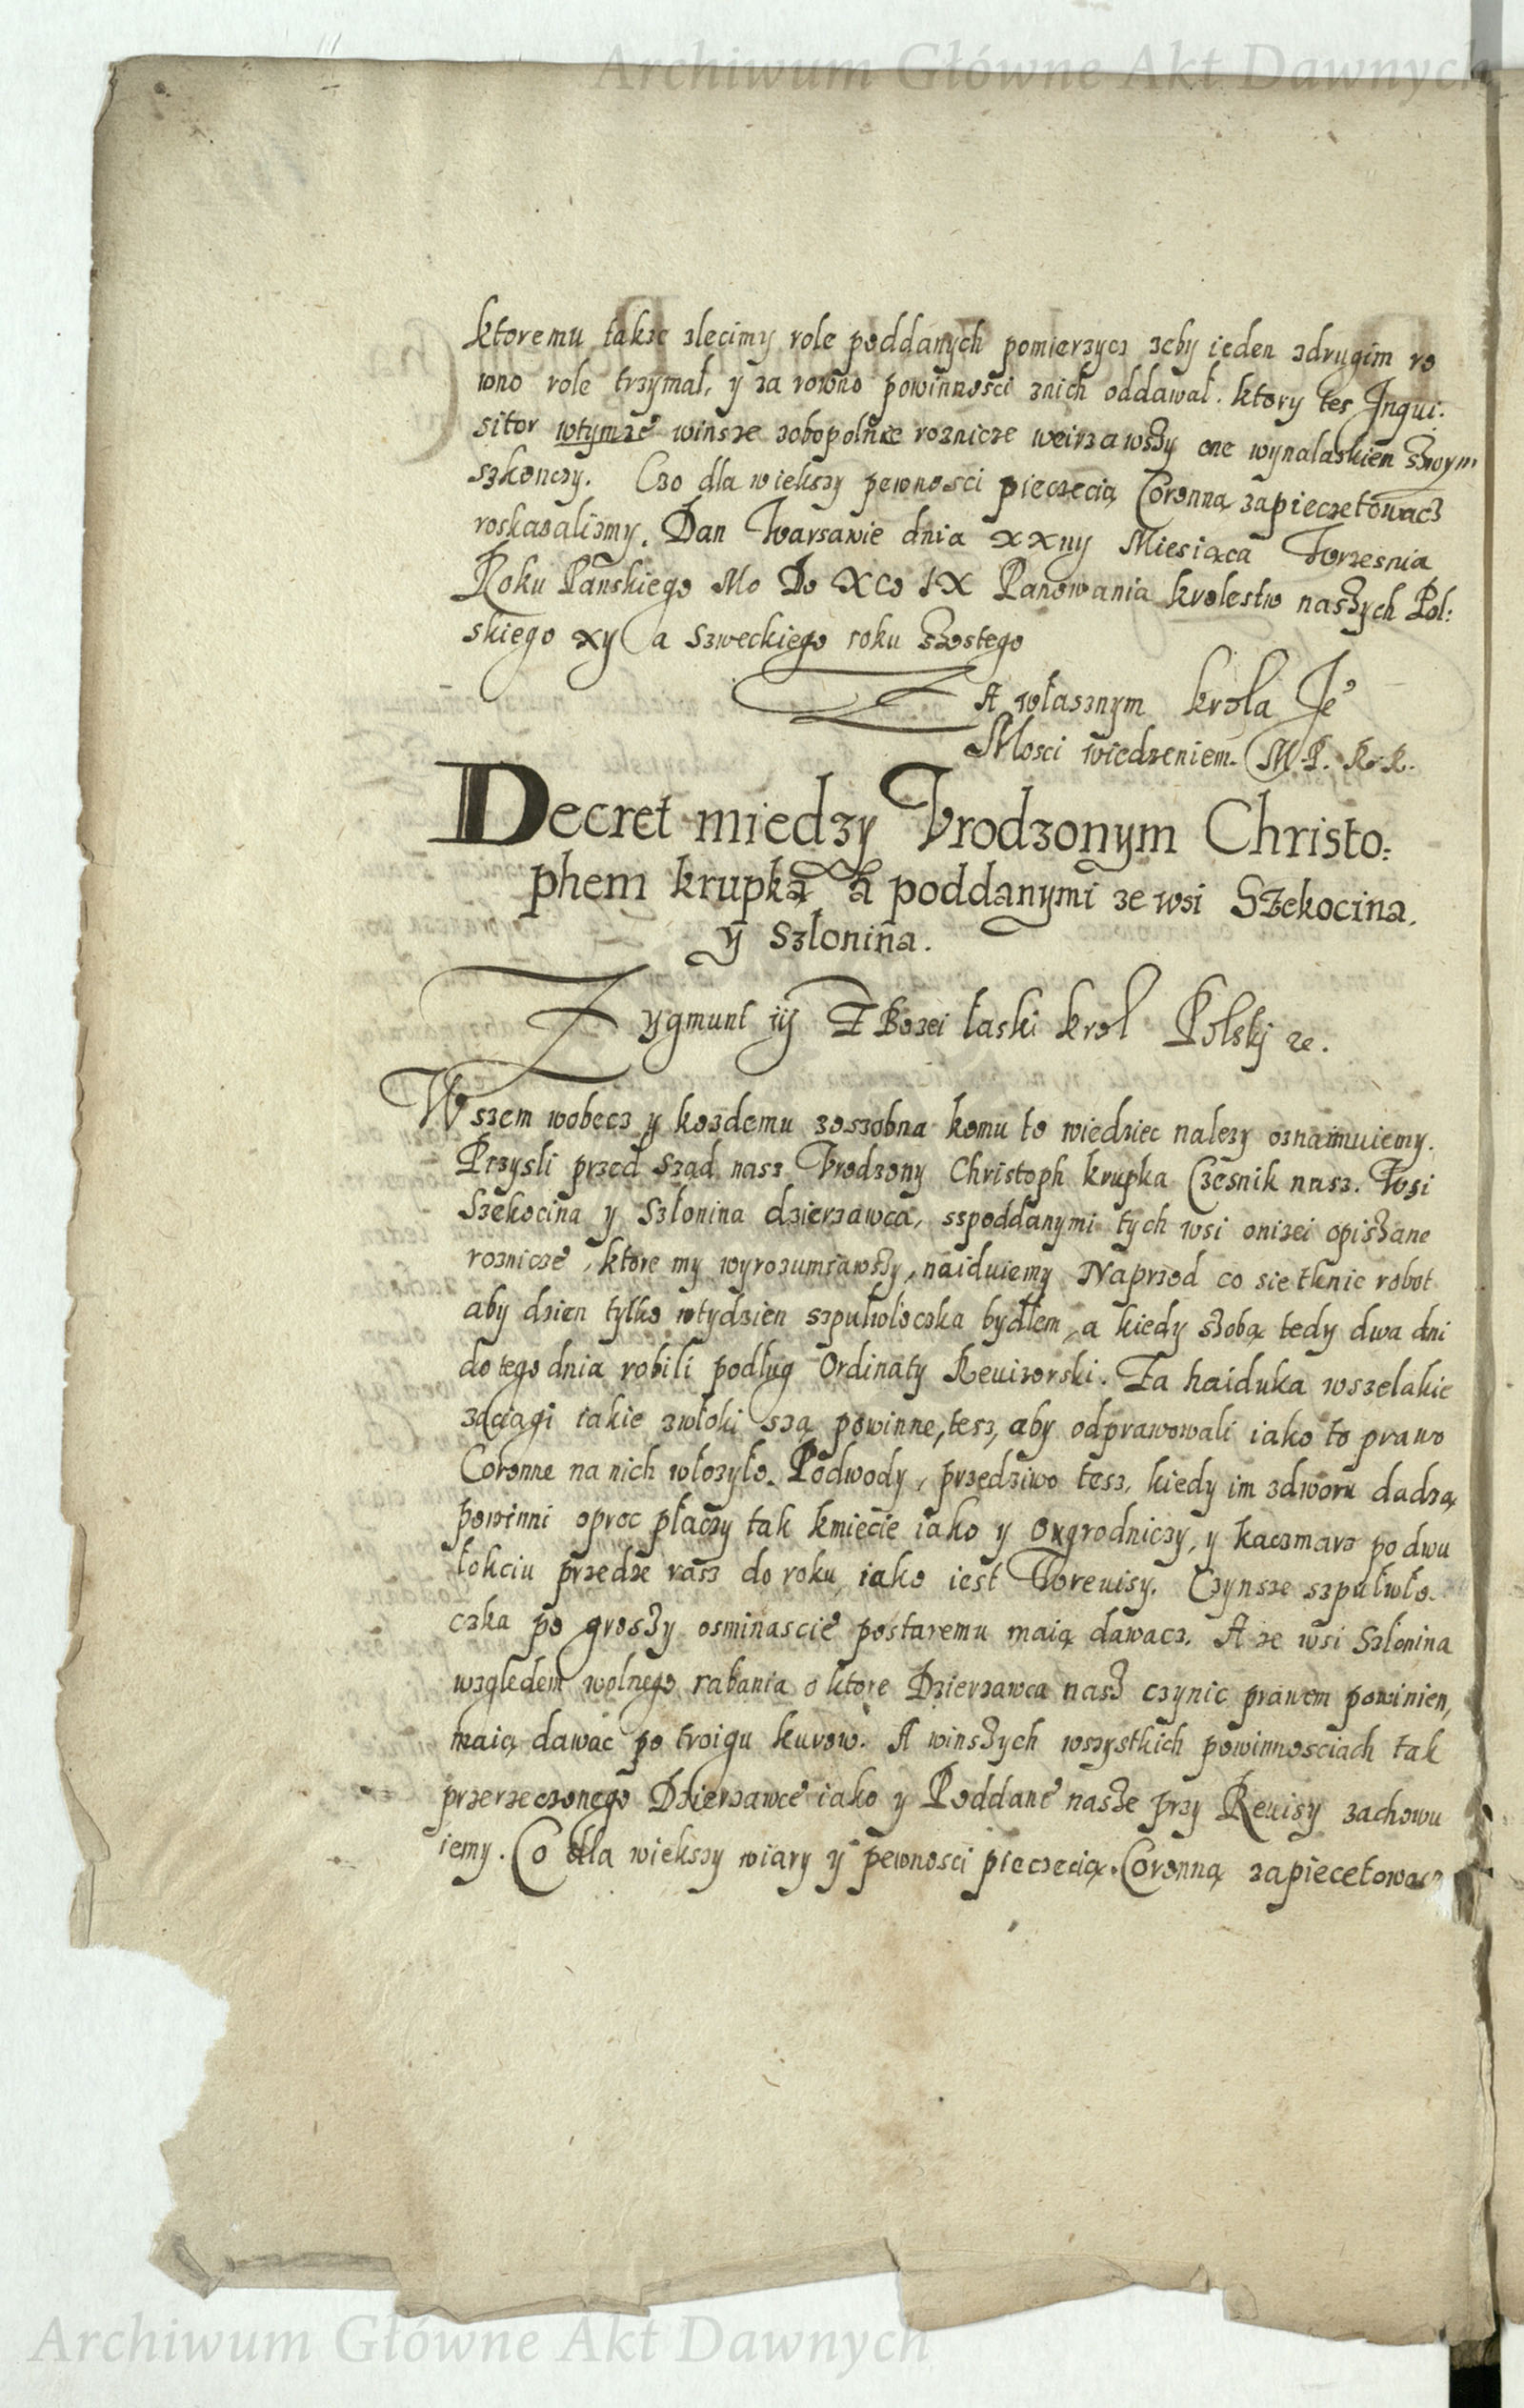 Archiwum Główne Akt Dawnych
ktoremu takze zlecimy role poddanych pomierzycz zeby ieden zdrugim ro
wno role trzymał, y za rowno powinnosci znich oddawał. ktory tes Inqui:
sitor wtymze winsze zobopolnie roznicze weirzawszy one wynalaskien szwym
szkonczy. Czo dla wiekszy pewnosci pieczecią Coronną zapieczetowacz
roskazalizmy. Dan Warsawie dnia xxiiij Miesiąca Wrzesnia
Roku Panskiego Mo Do XCo IX Panowania krolestw naszych Pol:
skiego xij a Szweckiego roku szostego
ZA własznym krola Je°
Mosci wiedzeniem. M. P. R. R.
Decret miedzy Vrodzonym Christo:
phem krupką a poddanymi ze wsi Szekocina.
y Szlonina.
Zygmunt iij Z Bozei łaski krol Polskj etc.
Wszem wobecz y kozdemu zoszobna komu to wiedziec nalezy oznaimuiemy.
Przysli przed Sząd nasz Vrodzony Christoph krupka Czesnik nasz. Wsi
Szekocina y Szlonina dzierzawca, sspoddanymi tych wsi onizei opiszane
roznicze, ktore my wyrozumiawszy, naiduiemy Naprzod co sie tknie robot
aby dzien tylko wtydzien szpułwłoczka bydłem, a kiedy szobą tedy dwa dni
do tego dnia robili podług Ordinaty Reuizorski. Za haiduka wszelakie
zaciągi iakie zwłoki szą powinne, tesz, aby odprawowali iako to prawo
Coronne na nich włozyło. Podwody, przedziwo tesz, kiedy im zdworu dadzą
powinni oproc płaczy tak kmiecie iako y Ougrodniczy, y kaczmarz po dwu
łokciu przedze rasz do roku iako iest Wreuisy. Czynsze szpułwło.
czka po groszy osminascie postaremu maią dawacz. A ze wsi Szlonina
wzgledem wolnego rąbania o ktore Dzierzawca nasz czynic prawem powinien,
maią dawac po troigu kurow. A winszych wszystkich powinnosciach tak
przerzeczonego Dzierzawce iako y Poddane nasze przy Reuisy zachowu
iemy. Co dla wiekszy wiary y pewnosci pieczecią Coronną zapiecetowacz
Archiwum Główne Akt Dawnych